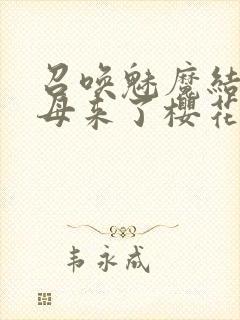 召唤魅魔结
母来了樱花
韦永成